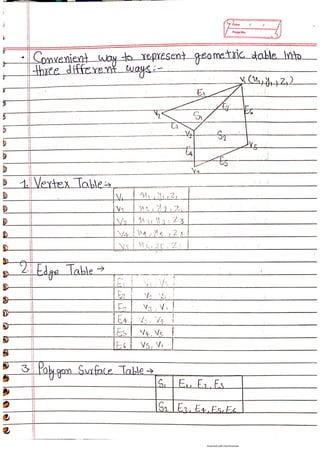 Convenient way to represent geometric table into
three different ways:-
X (x₁, y₁, z₁)
E₁
V₂
S₁
E₃
E₆
E₂
V₃
S₂
E₄
V₅
E₅
V₄
1. Vertex Table →
V₁ x₁, y₁, z₁
V₂ x₂, y₂, z₂
V₃ x₃, y₃, z₃
V₄ x₄, y₄, z₄
V₅ x₅, y₅, z₅
2. Edge Table →
E₁ V₁, V₂
E₂ V₂, V₃
E₃ V₃, V₁
E₄ V₃, V₄
E₅ V₄, V₅
E₆ V₅, V₁
3. Polygon Surface Table →
S₁ E₁, E₂, E₃
S₂ E₃, E₄, E₅, E₆